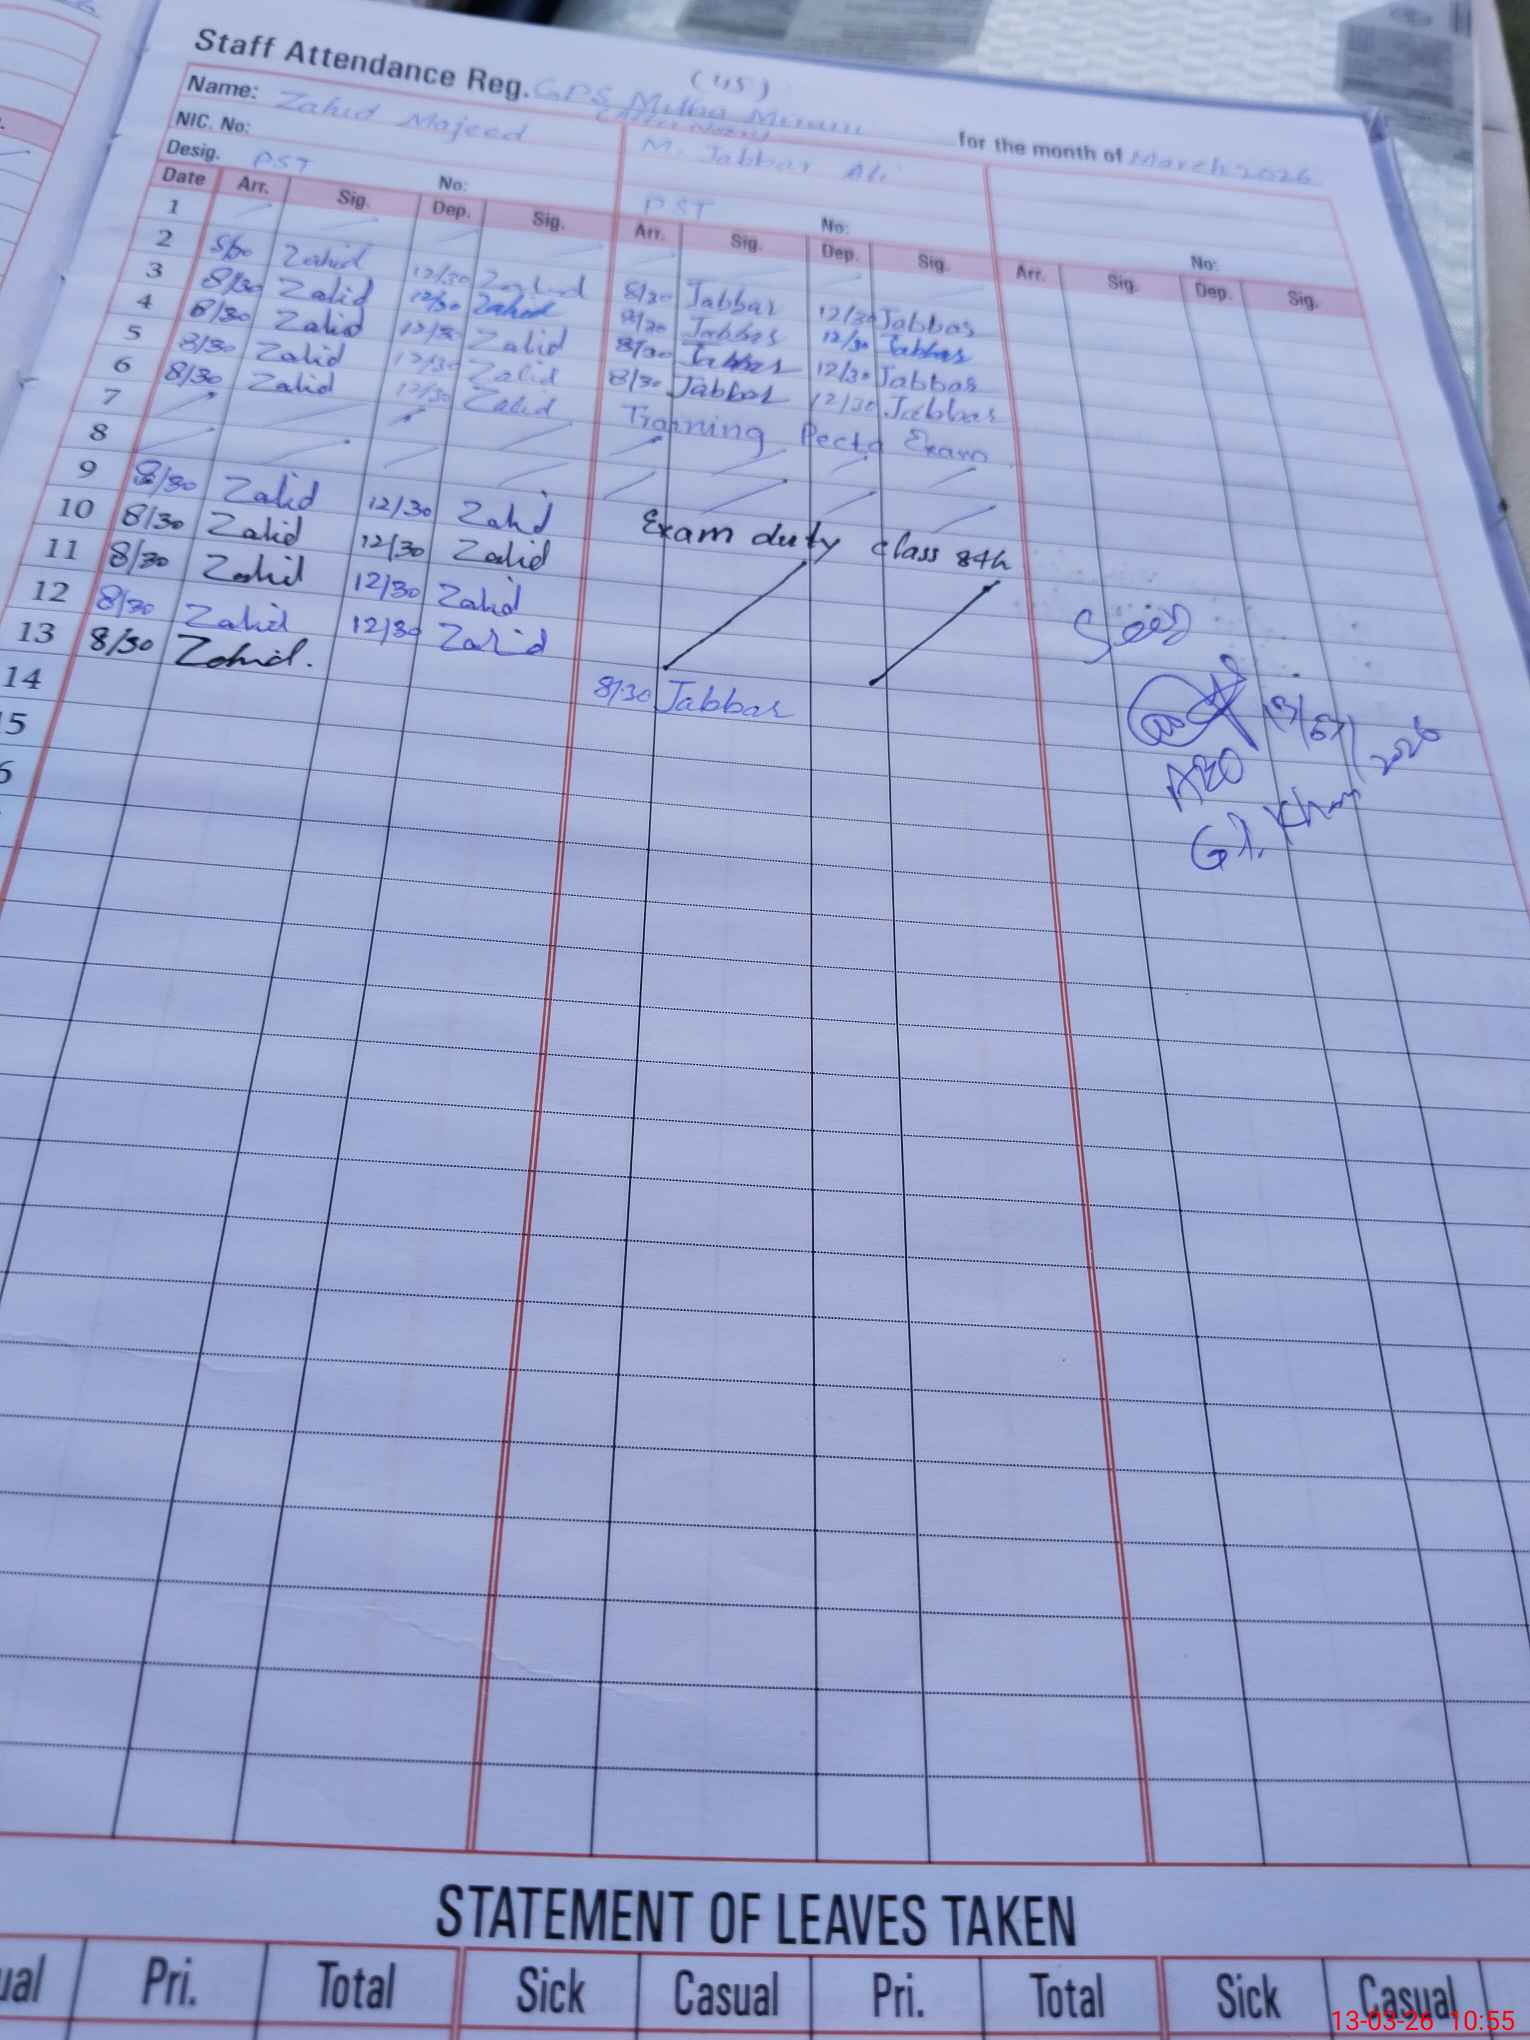 Staff Attendance Reg. GPS for the month of March 2026
Name: Zahid Majeed M. Jabbar Ali
NIC. No:
Desig. PST No: PST No: No:
Date Arr. Sig. Dep. Sig. Arr. Sig. Dep. Sig. Arr. Sig. Dep. Sig.
1
2 Zahid 12/30 8/30 Jabbar 12/30 Jabbar
3 8/30 Zahid 12/30 Zahid 8/30 Jabbar 12/30 Jabbar
4 8/30 Zahid 12/30 Zahid 8/30 Jabbar 12/30 Jabbar
5 8/30 Zahid 12/30 Zahid 8/30 Jabbar 12/30 Jabbar
6 8/30 Zahid 12/30 Zahid Training Pecta Exam
7
8
9 8/30 Zahid 12/30 Zahid Exam duty class 8th
10 8/30 Zahid 12/30 Zahid
11 8/30 Zahid 12/30 Zahid
12 8/30 Zahid 12/30 Zahid
13 8/30 Zahid. 8/30 Jabbar
14
5
6
13/03/2026
AEO
STATEMENT OF LEAVES TAKEN
ual Pri. Total Sick Casual Pri. Total Sick Casual
13-03-26 10:55